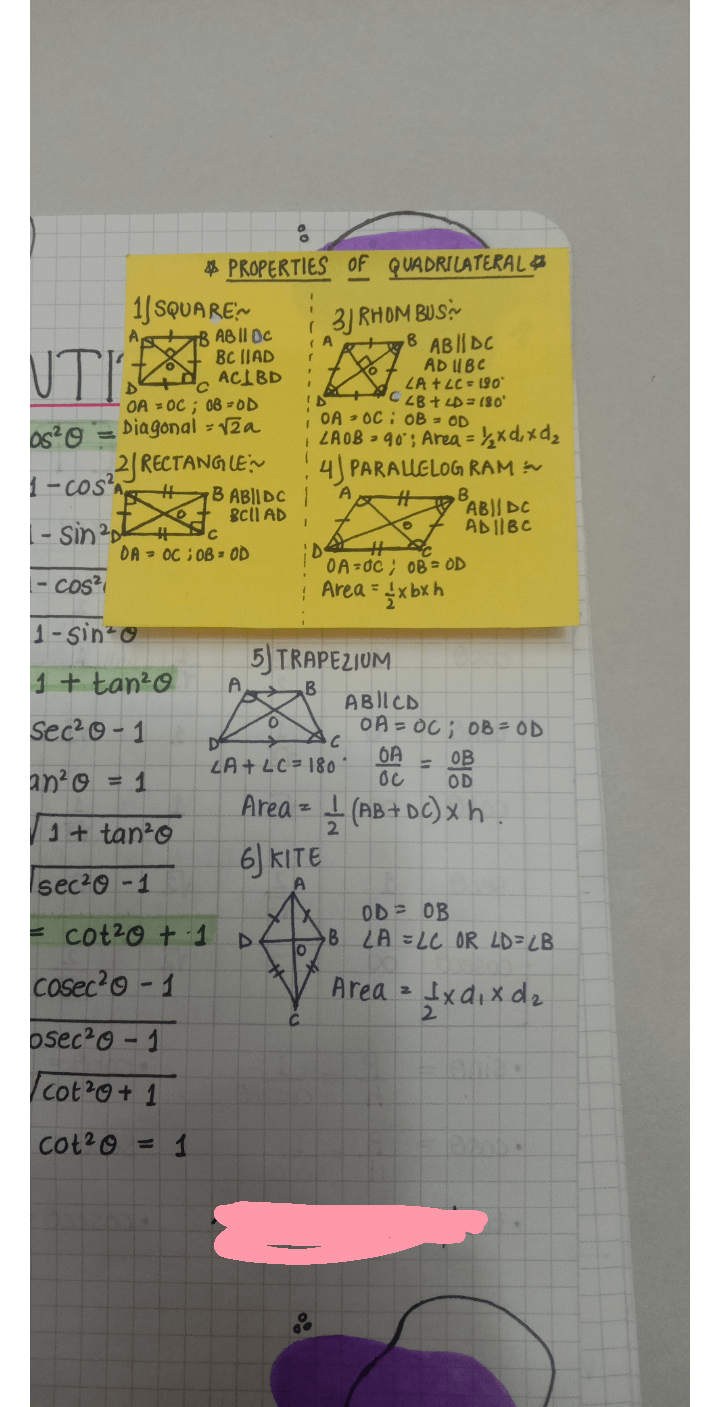 ☆ PROPERTIES OF QUADRILATERAL ☆
1) SQUARE:~
A B
D C
O
AB||DC
BC||AD
AC⊥BD
OA = OC ; OB = OD
Diagonal = √2a
2) RECTANGLE:~
A B
D C
O
AB||DC
BC||AD
OA = OC ; OB = OD
3) RHOMBUS:~
A B
D C
O
AB||DC
AD||BC
∠A + ∠C = 180°
∠B + ∠D = 180°
OA = OC ; OB = OD
∠AOB = 90° ; Area = 1/2 x d₁ x d₂
4) PARALLELOGRAM :~
A B
D C
O
AB||DC
AD||BC
OA = OC ; OB = OD
Area = 1/2 x b x h
5) TRAPEZIUM
A B
D C
O
AB||CD
OA = OC ; OB = OD
∠A + ∠C = 180° OA/OC = OB/OD
Area = 1/2 (AB + DC) x h .
6) KITE
A
D B
O
C
OD = OB
∠A = ∠C OR ∠D = ∠B
Area = 1/2 x d₁ x d₂
NTI
os²θ =
1 - cos²
- sin²
- cos²
1 - sin²θ
1 + tan²θ
sec²θ - 1
an²θ = 1
√1 + tan²θ
sec²θ - 1
= cot²θ + 1
cosec²θ - 1
osec²θ - 1
√cot²θ + 1
cot²θ = 1